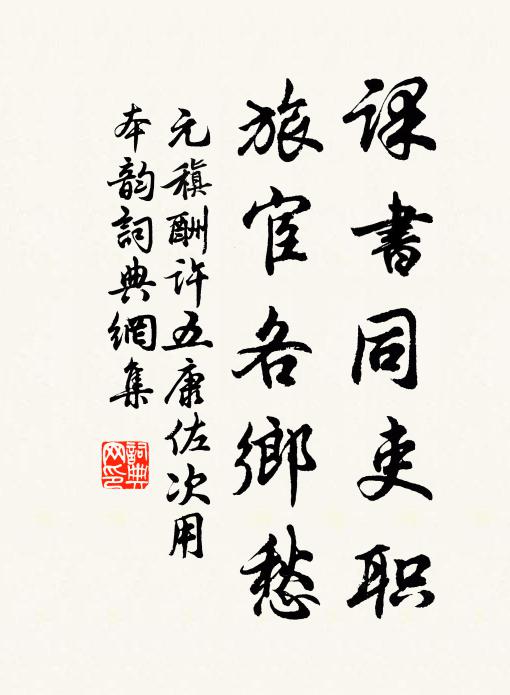 课書同吏职
旅宦各鄉愁
元稹酬许五康佐次用
本韵詞典網集
詞典网印